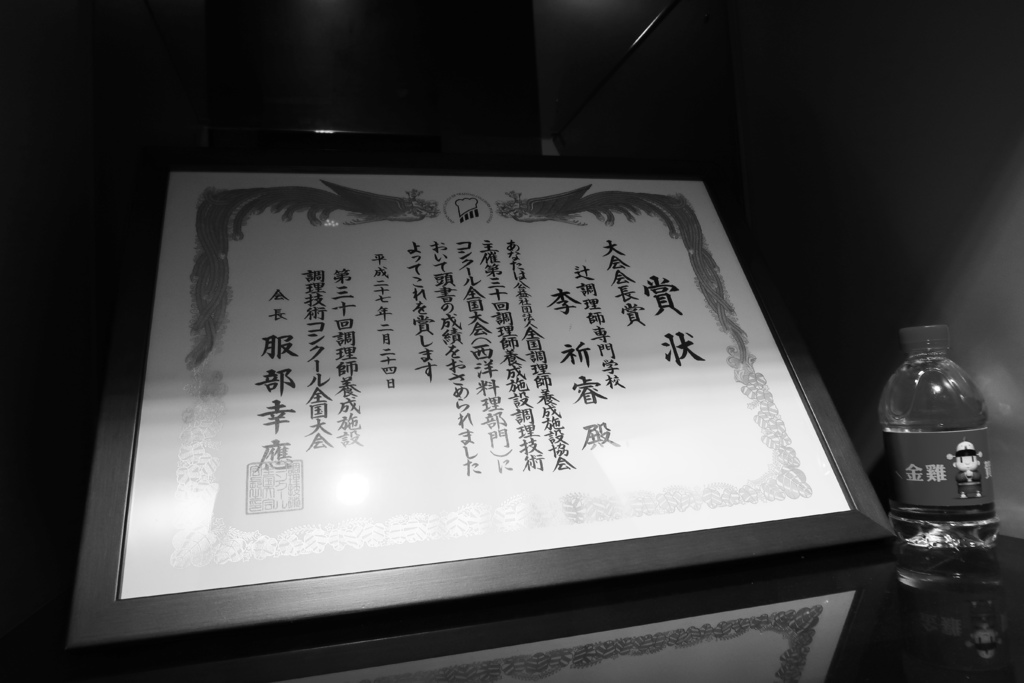 賞状
大会会長賞
辻調理師専門学校
李祈睿殿
あなたは公益社団法人全国調理師養成施設協会
主催第三十回調理師養成施設調理技術
コンクール全国大会(西洋料理部門)に
おいて頭書の成績をおさめられました
よってこれを賞します
平成二十七年二月二十四日
第三十回調理師養成施設
調理技術コンクール全国大会
会長 服部幸應
金雞